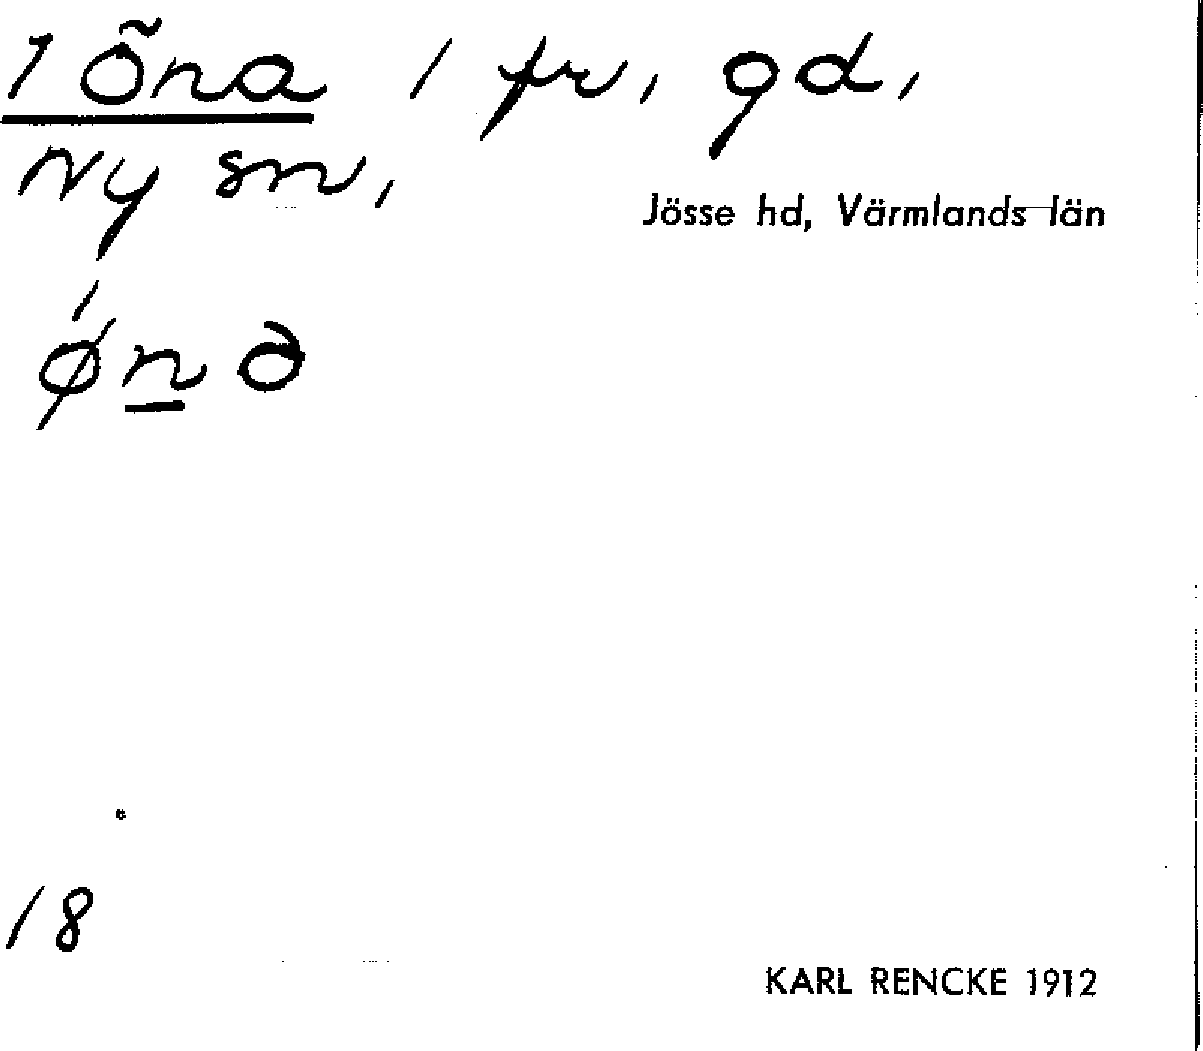 1 Öna 1 fr, gd,
Ny sn,
Jösse hd, Värmlands län
ǿn̲ə
18
KARL RENCKE 1912